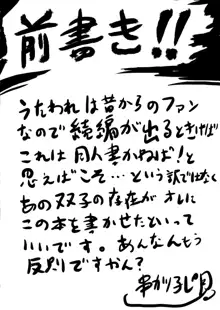 前書き!!
うたわれは昔からのファン
なので続編が出るときけば
これは同人書かねば！と
思えばこそ…という訳ではなく
あの双子の存在がオレに
この本を書かせたといって
いいです。あんなんもう
反則ですやん？
串がりろじ